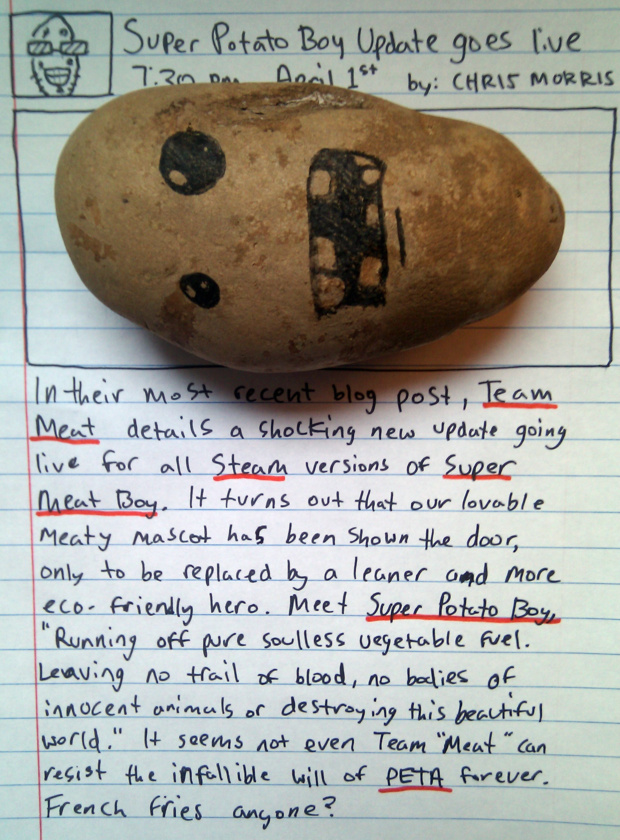 Super Potato Boy Update goes live
7:30 pm April 1st by: CHRIS MORRIS
In their most recent blog post, Team
Meat details a shocking new update going
live for all Steam versions of Super
Meat Boy. It turns out that our lovable
meaty mascot has been shown the door,
only to be replaced by a leaner and more
eco-friendly hero. Meet Super Potato Boy,
"Running off pure soulless vegetable fuel.
Leaving no trail of blood, no bodies of
innocent animals or destroying this beautiful
world." It seems not even Team "Meat" can
resist the infallible will of PETA forever.
French fries anyone?